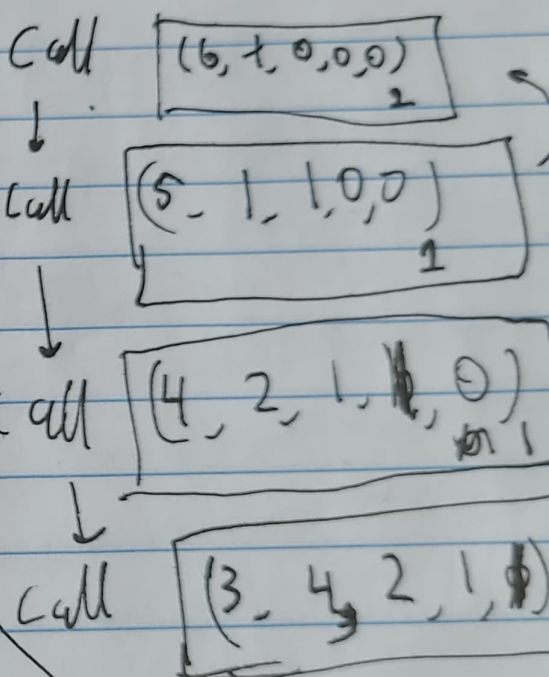 Call (6, 1, 0,0,0)
1
Call (5, 1, 1,0,0)
1
Call (4, 2, 1, 1, 0)
1
Call (3, 4, 2, 1, 1)